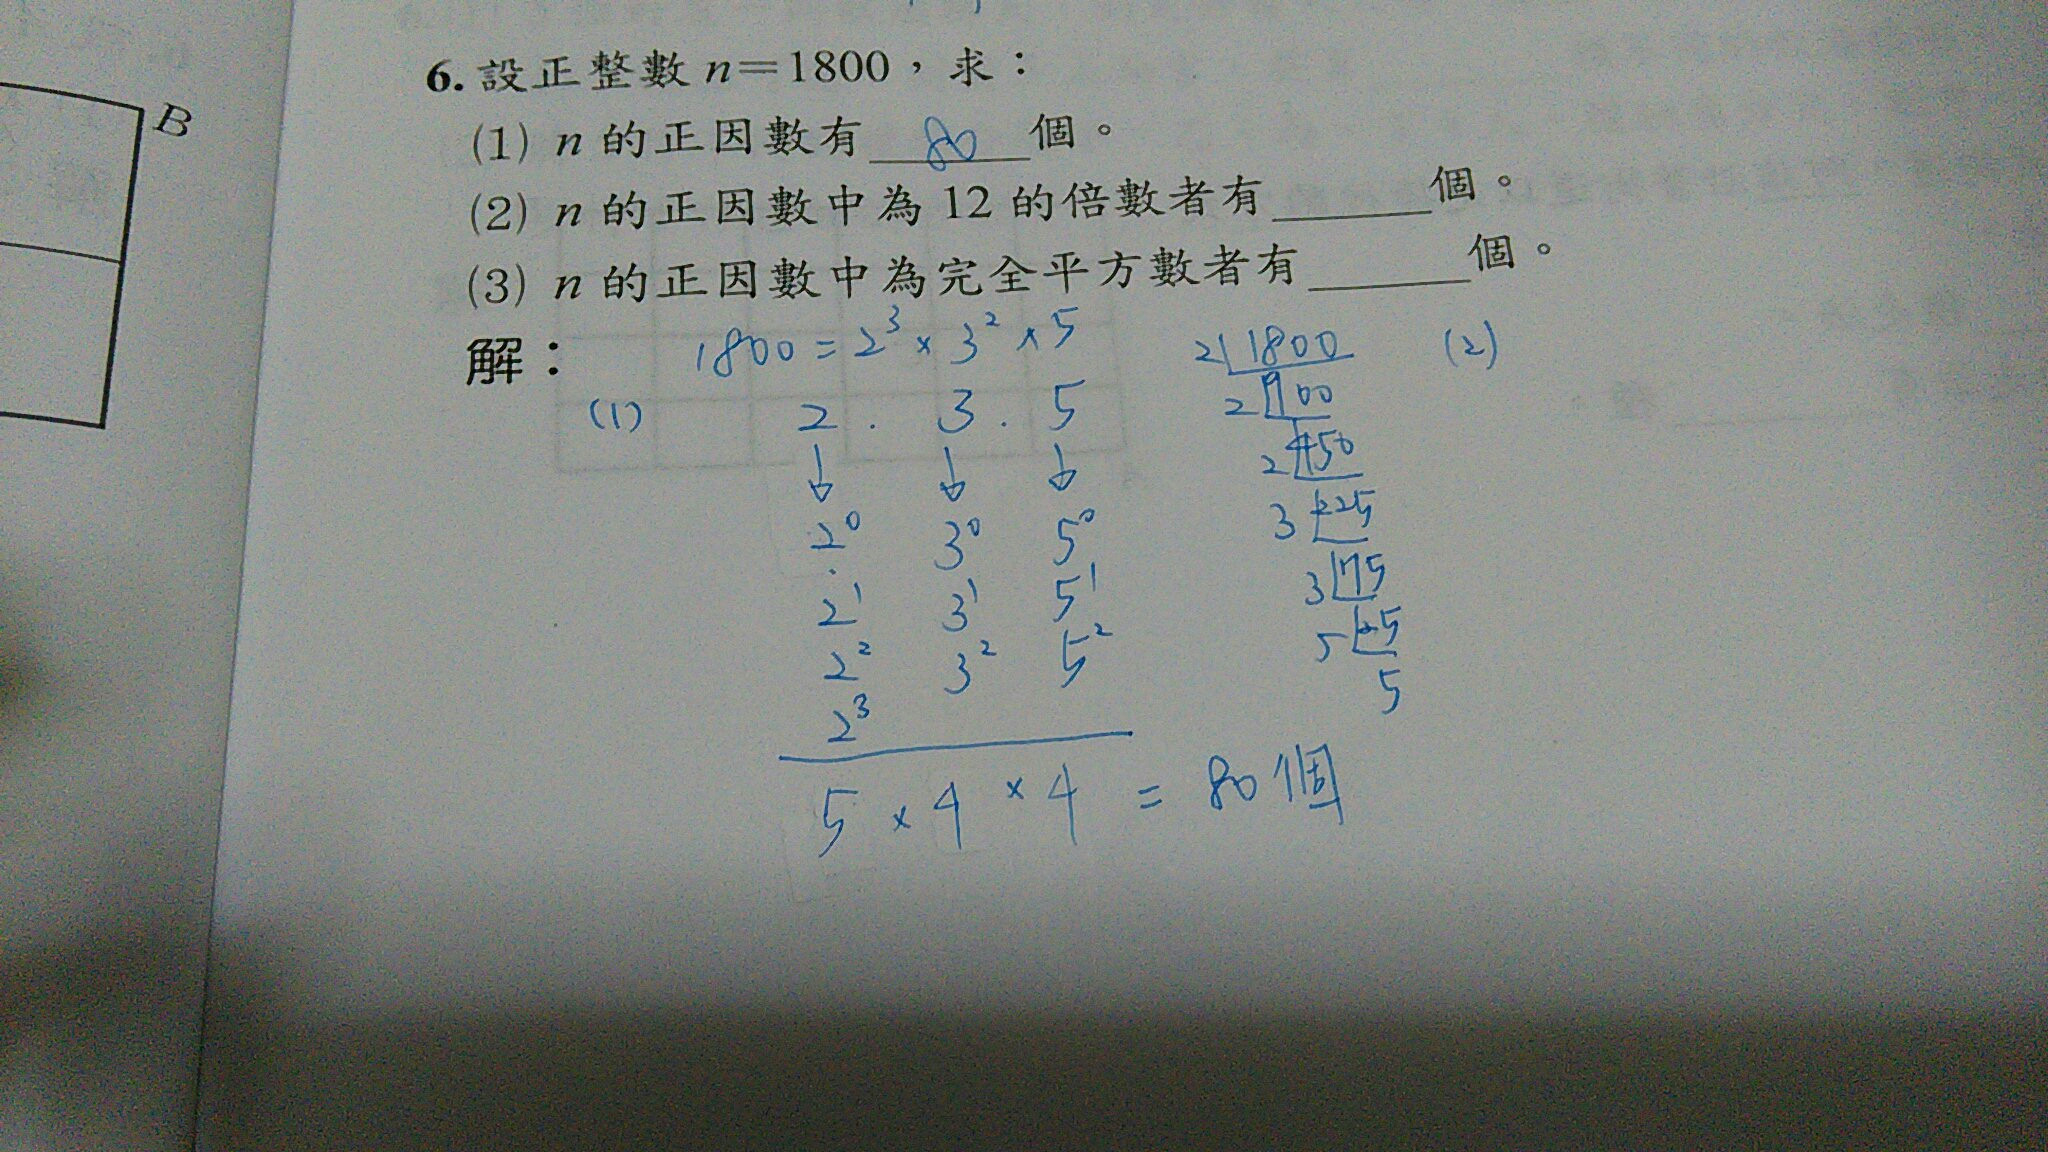 B
6. 設正整數 n=1800，求：
(1) n 的正因數有 80 個。
(2) n 的正因數中為 12 的倍數者有______個。
(3) n 的正因數中為完全平方數者有______個。
解：
1800 = 2³ × 3² × 5
(1)
2 . 3 . 5
↓ ↓ ↓
2⁰ 3⁰ 5⁰
2¹ 3¹ 5¹
2² 3² 5²
2³
5 × 4 × 4 = 80 個
2 1800
2 900
2 450
3 225
3 75
5 25
5
(2)